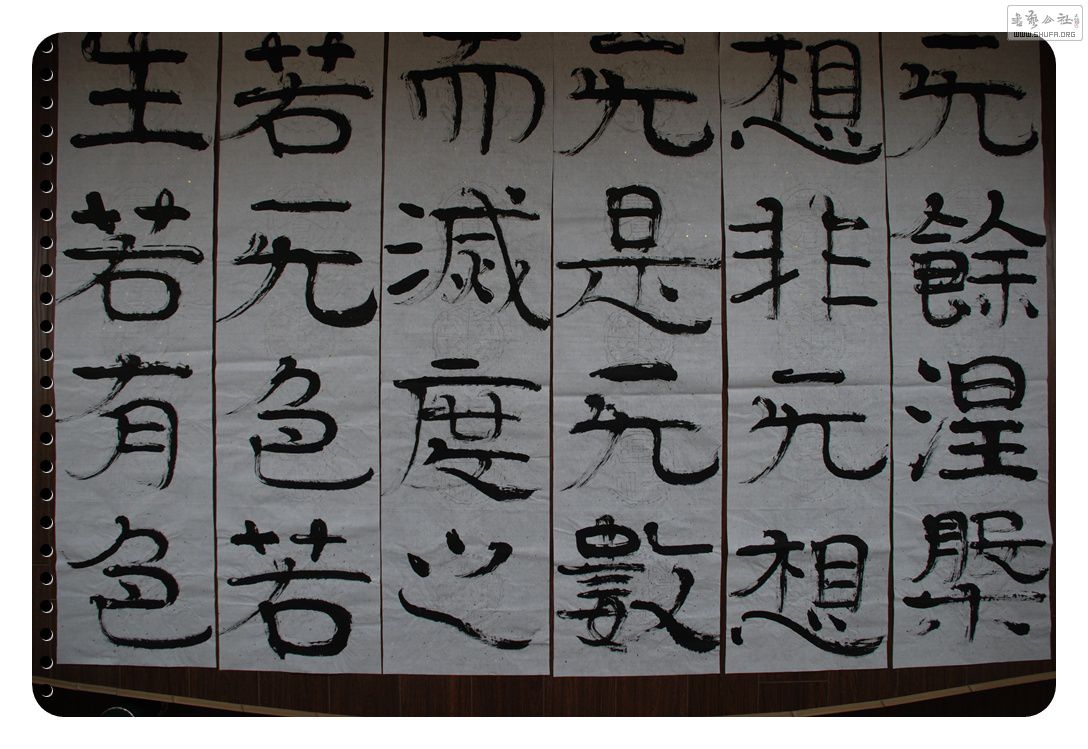 无餘涅槃
想非无想
无是无數
而滅度之
若无色若
生若有色
書藝公社
WWW.SHUFA.ORG